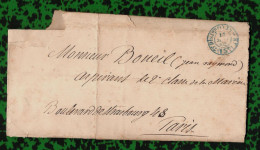 Monsieur Bouëil (jean raymond)
aspirant de 2e classe de la Marine
Boulevard de Strasbourg 43
Paris